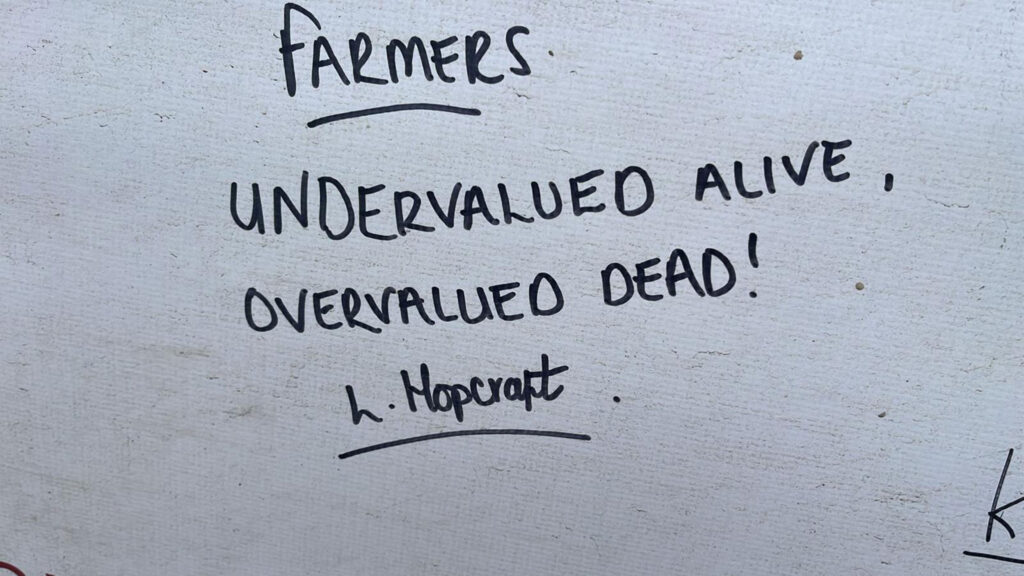 FARMERS
UNDERVALUED ALIVE,
OVERVALUED DEAD!
L. Hopcraft.
K